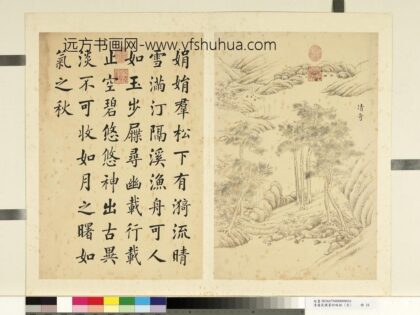 远方书画网 www.yfshuhua.com
清奇
娟娟羣松下有漪流晴
雪滿汀隔溪漁舟可人
如玉步屧尋幽載行載
止空碧悠悠神出古異
淡不可收如月之曙如
氣之秋